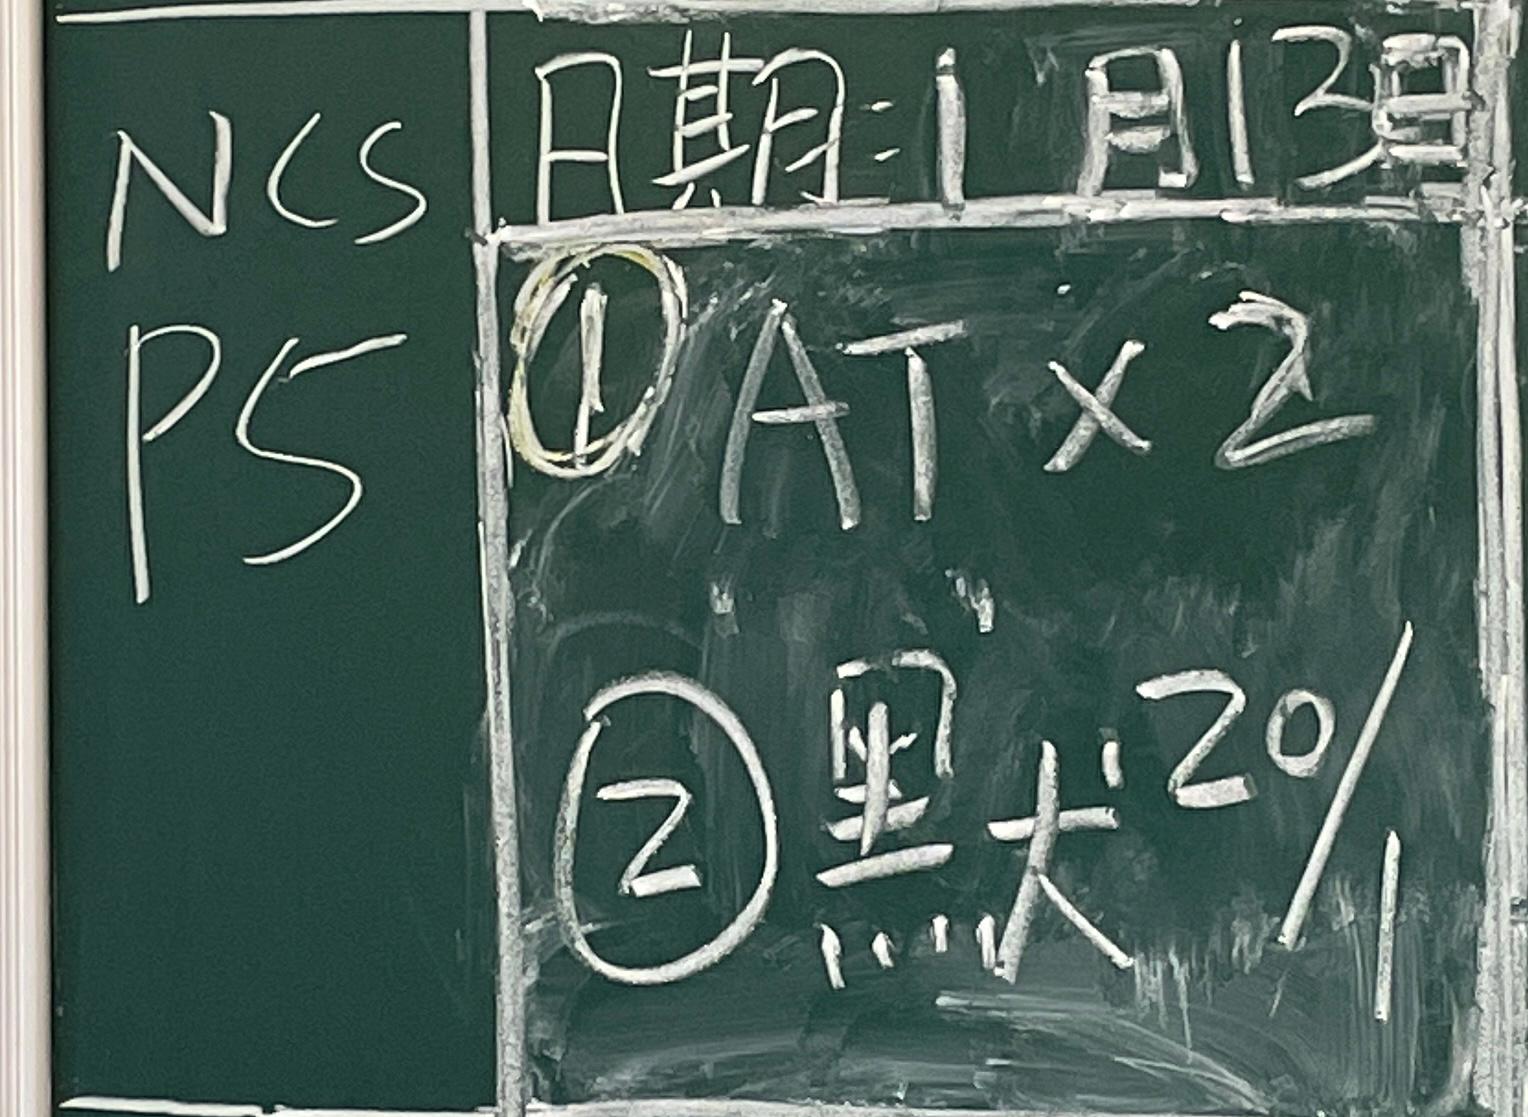 NCS
P5
日期:1月13日
① AT x 2
② 黑犬 20/1